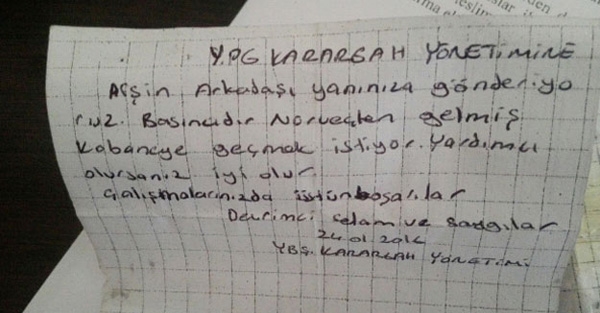 Y.P.G KARARGAH YÖNETİMİNE
Afşin Arkadaşı yanınıza gönderiyo
ruz. Basıncıdır Norveçten gelmiş
Kobaneye geçmek istiyor. Yardımcı
olursanız iyi olur.
Çalışmalarınızda üstün başarılar
Devrimci selam ve saygılar
YBŞ. KARARGAH YÖNETİMİ